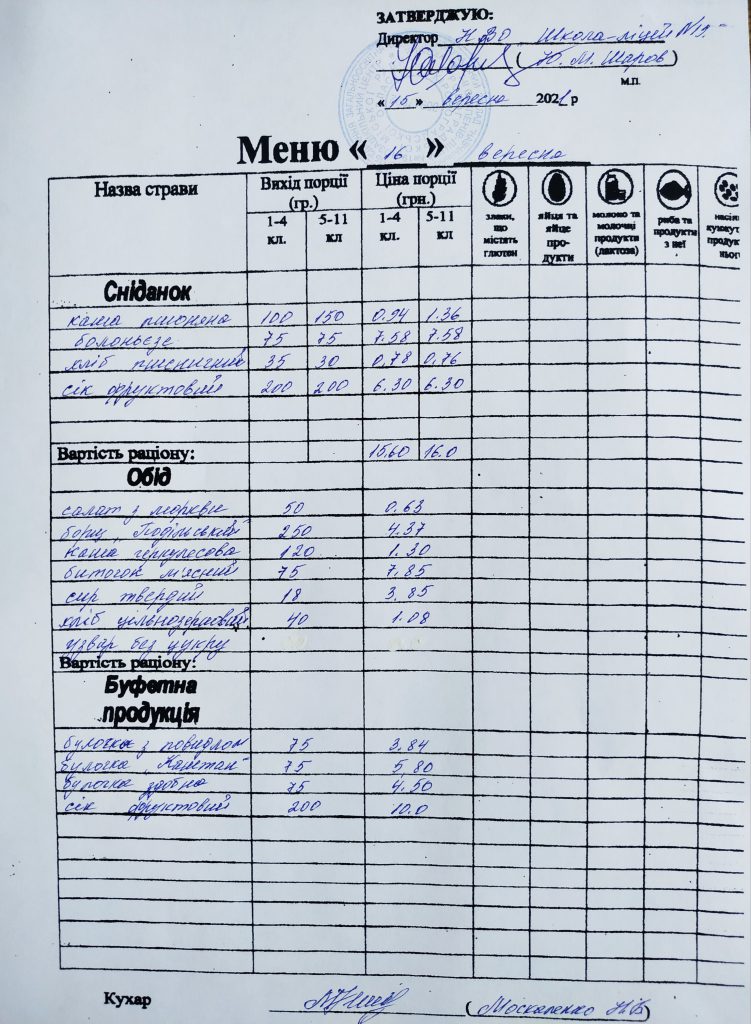 ЗАТВЕРДЖУЮ:
Директор НВО Школа-ліцей №19
( Ю. М. Шаров )
м.п.
« 15 » вересня 2021 р
Меню « 16 » вересня
Назва страви Вихід порції (гр.) Ціна порції (грн.)
1-4 кл. 5-11 кл 1-4 кл. 5-11 кл
злаки, що містять глютен
яйця та яйце продукти
молоко та молочні продукти (лактоза)
риба та продукти з неї
Сніданок
каша пшоняна 100 150 0.94 1.36
болоньєзе 75 75 7.58 7.58
хліб пшеничний 35 30 0,78 0,76
сік фруктовий 200 200 6.30 6.30
Вартість раціону: 15.60 16.0
Обід
салат з моркви 50 0.63
борщ „Подільський" 250 4.37
каша геркулесова 120 1.30
биточок м'ясний 75 7,85
сир твердий 18 3,85
хліб цільнозерновий 40 1.08
узвар без цукру
Вартість раціону:
Буфетна
продукція
булочка з повидлом 75 3.84
булочка „Каштан" 75 5,80
булочка здобна 75 4.50
сік фруктовий 200 10.0
Кухар ( Москаленко Н.В )